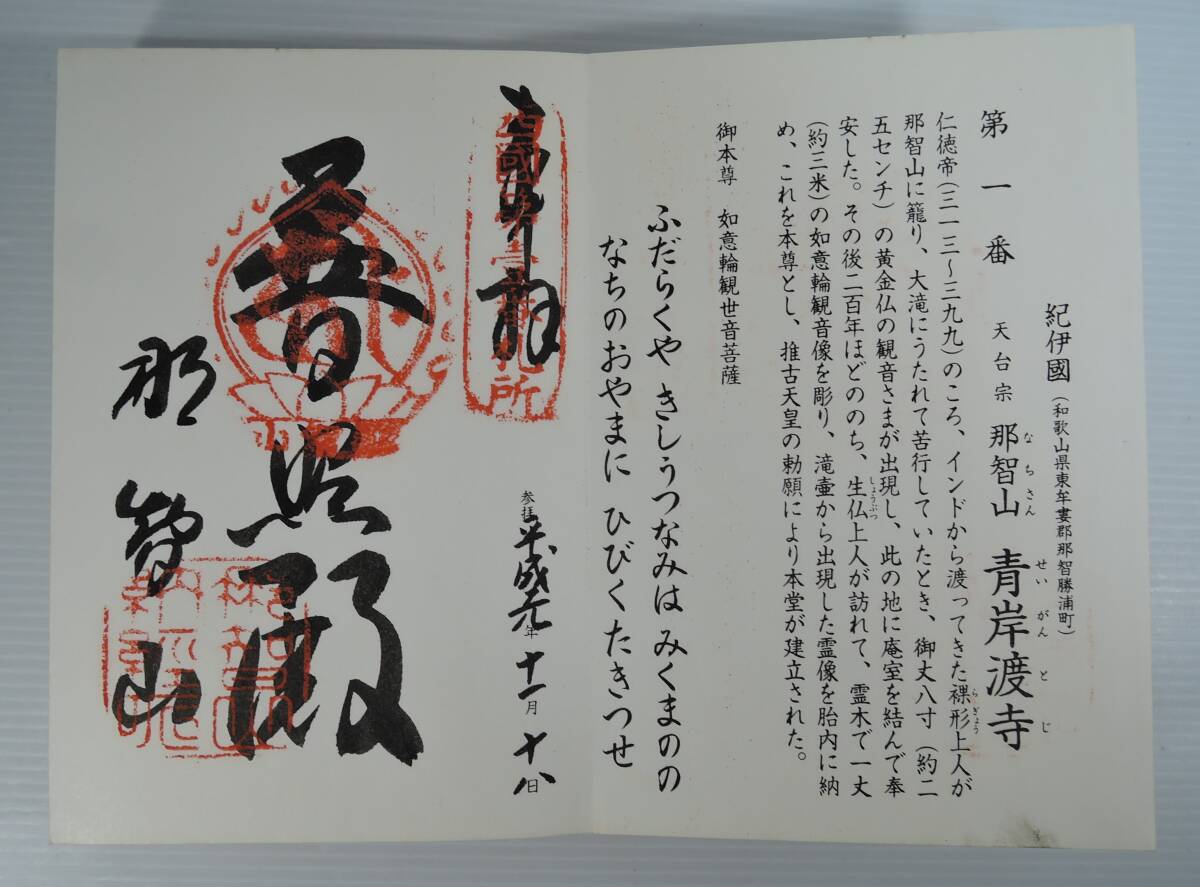 紀伊國（和歌山県東牟婁郡那智勝浦町）
第一番 天台宗 那智山 青岸渡寺
なちさん せいがんとじ
仁徳帝（三一三〜三九九）のころ、インドから渡ってきた裸形上人が
らぎょう
那智山に籠り、大滝にうたれて苦行していたとき、御丈八寸（約二
五センチ）の黄金仏の観音さまが出現し、此の地に庵室を結んで奉
安した。その後二百年ほどののち、生仏上人が訪れて、霊木で一丈
しょうぶつ
（約三米）の如意輪観音像を彫り、滝壷から出現した霊像を胎内に納
め、これを本尊とし、推古天皇の勅願により本堂が建立された。
御本尊 如意輪観世音菩薩
ふだらくや きしうつなみは みくまのの
なちのおやまに ひびくたきつせ
参拝 平成元年十一月十八日
奉拝
普照殿
那智山